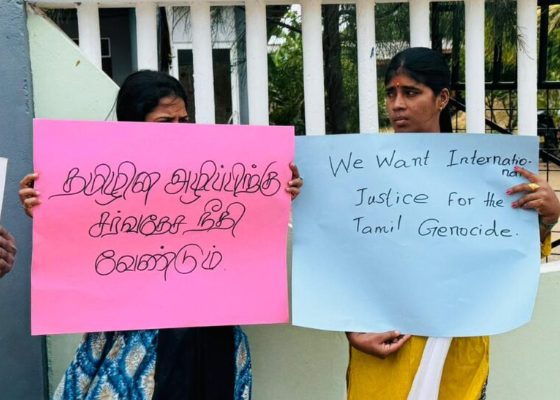 தமிழின அழிப்பிற்கு
சர்வதேச நீதி
வேண்டும்.
We Want Internatio-
nal
Justice For the
Tamil Genocide.